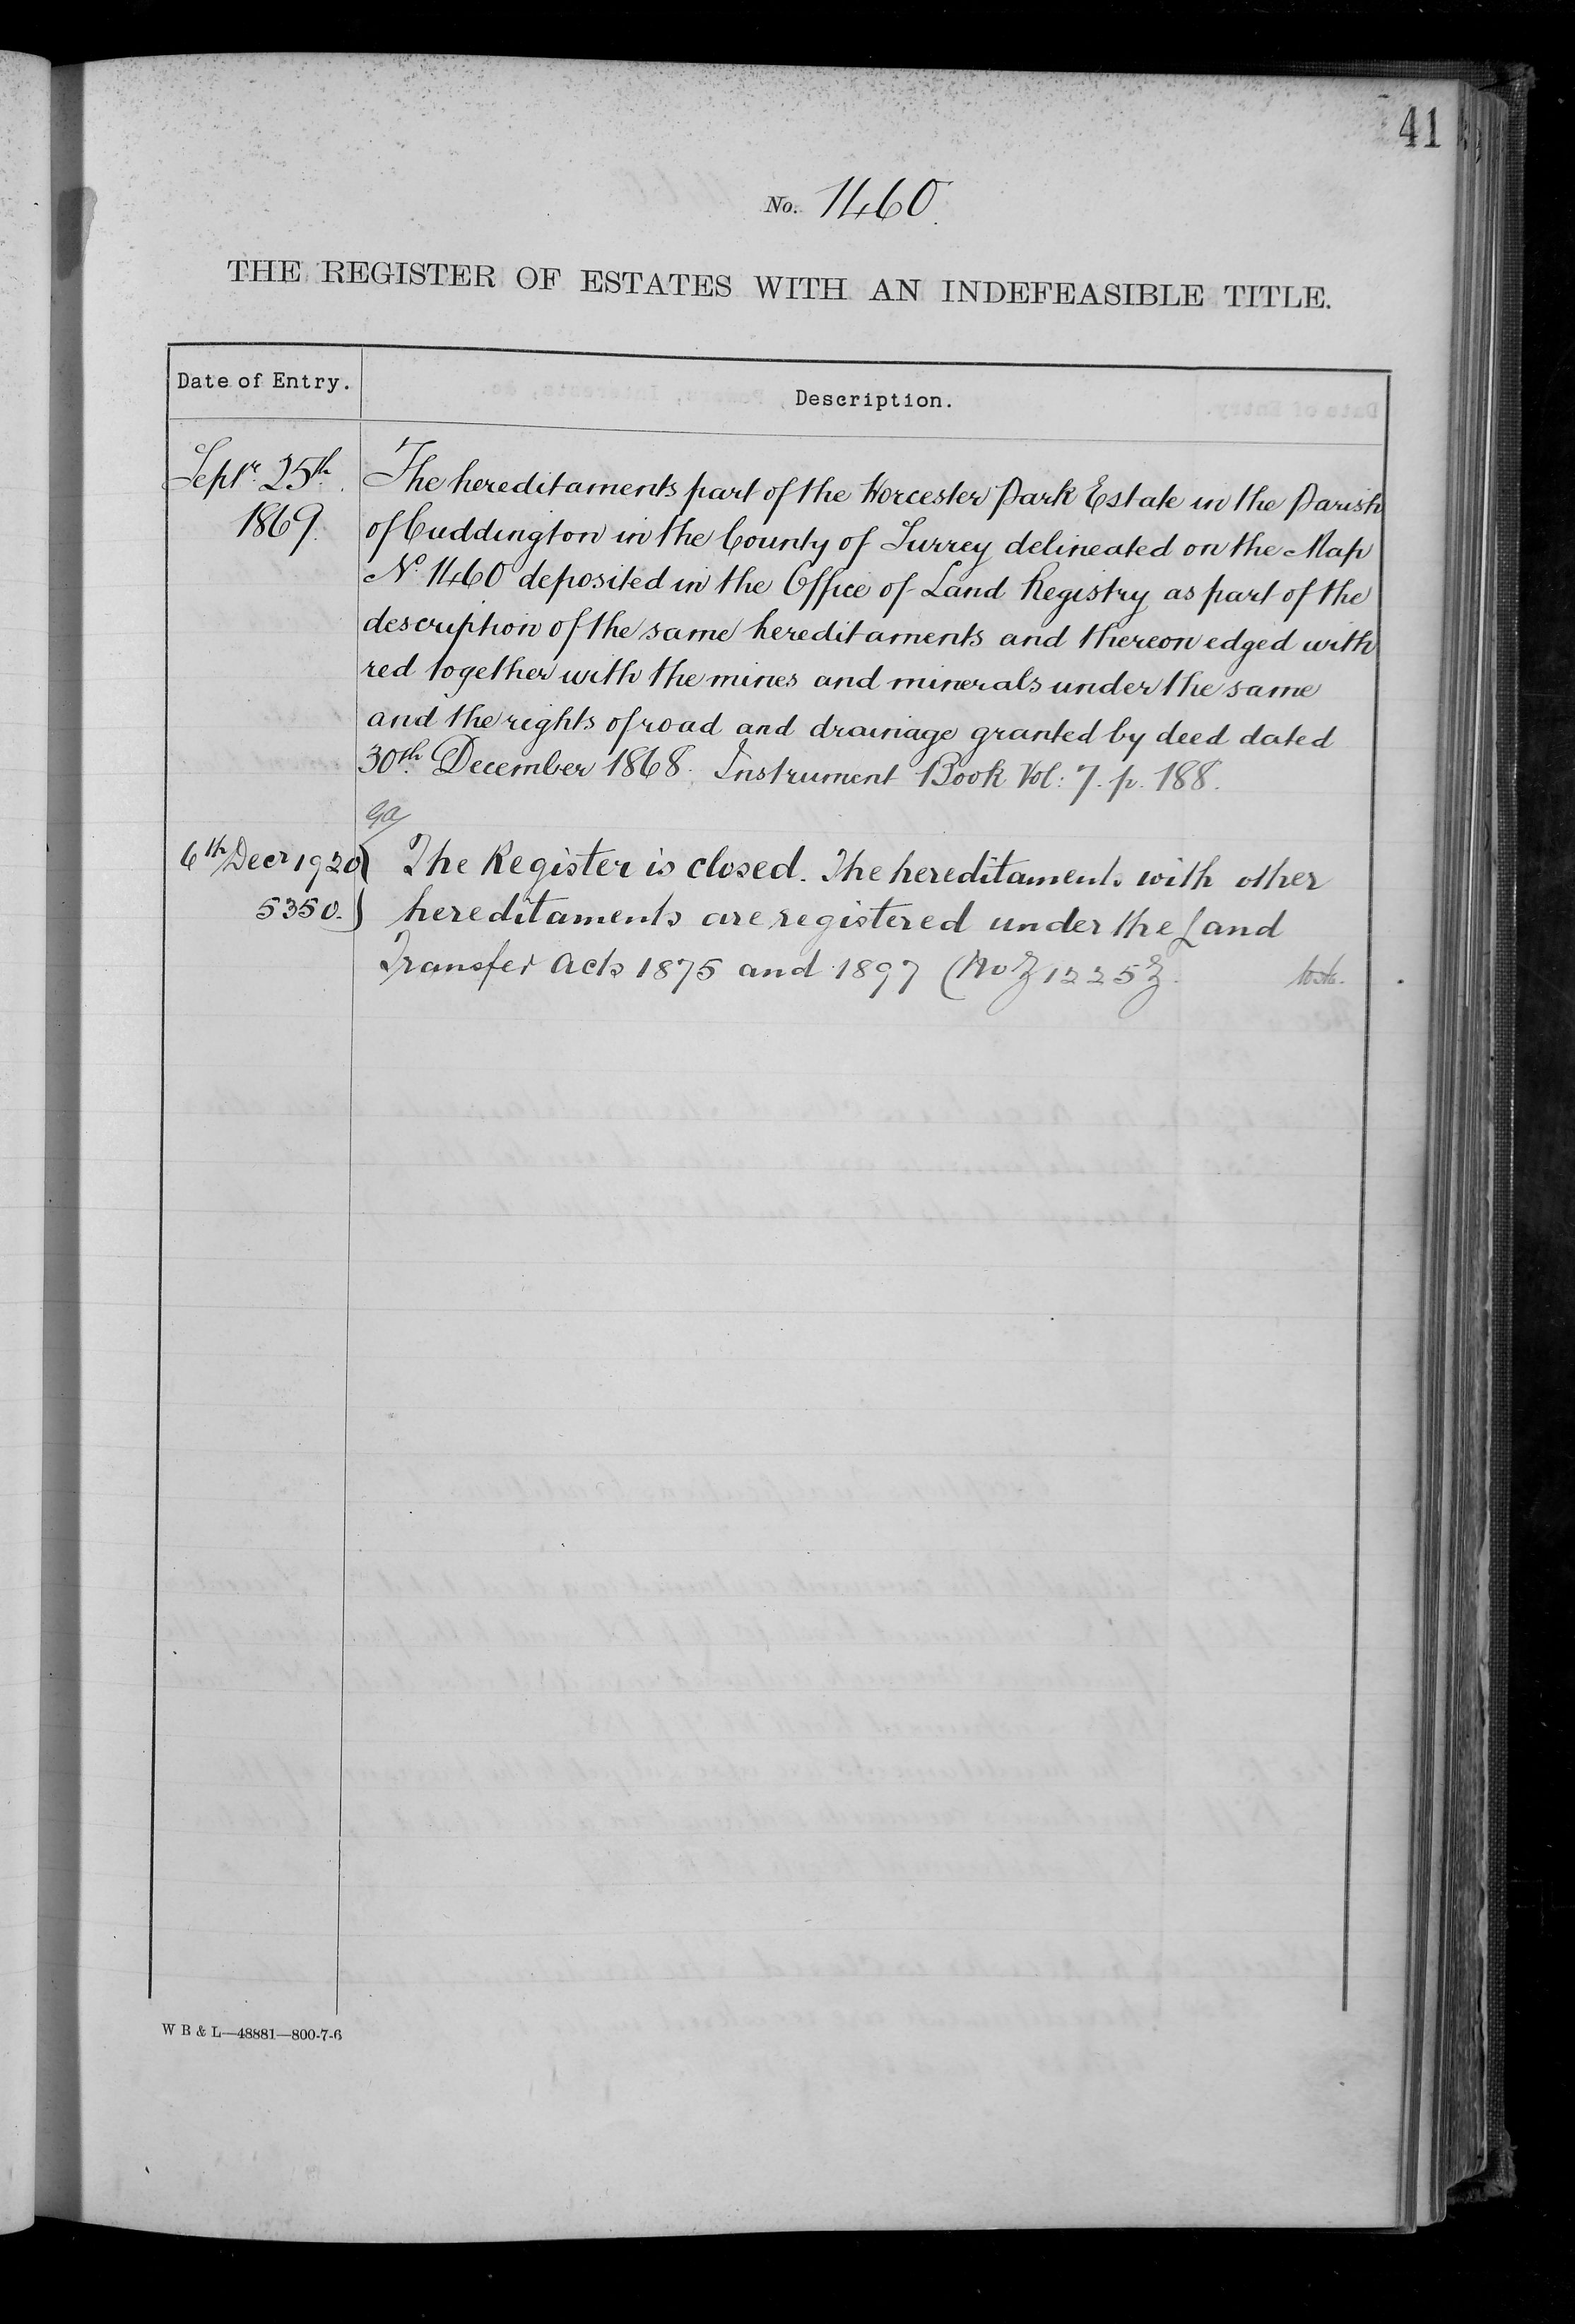 41
No. 1460.
THE REGISTER OF ESTATES WITH AN INDEFEASIBLE TITLE.
Date of Entry.
Description.
Septr. 25th. 1869.
The hereditaments part of the Worcester Park Estate in the Parish
of Cuddington in the County of Surrey delineated on the Map
No. 1460 deposited in the Office of Land Registry as part of the
description of the same hereditaments and thereon edged with
red together with the mines and minerals under the same
and the rights of road and drainage granted by deed dated
30th. December 1868. Instrument Book Vol: 7. p. 188.
6th Decr 1920
5350.
The Register is closed. The hereditaments with other
hereditaments are registered under the Land
Transfer Acts 1875 and 1897 (No
W B & L—48881—800-7-6